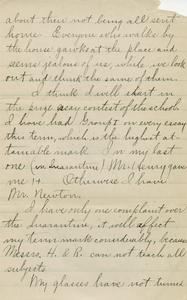 about them not being all sent
home. Everyone who walks by
the house gawks at the place and
seems jealous of us, while, we look
out and think the same of them.
I think I will start in
the essay contest of the school.
I have had Group I on every essay
this term, which is the highest at-
tainable mark. In my last
one (in Quarantine) Mr. Henry gave
me 1+. Otherwise I have
Mr. Newton.
I have only one complaint over
the Quarantine, it will affect
my term mark considerably, because
Messrs. H. & R. can not teach all
subjects.
My glasses have not turned